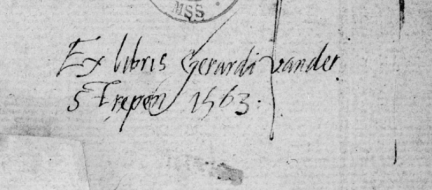 MSS
Ex libris Gerardi vander
strepen 1563.